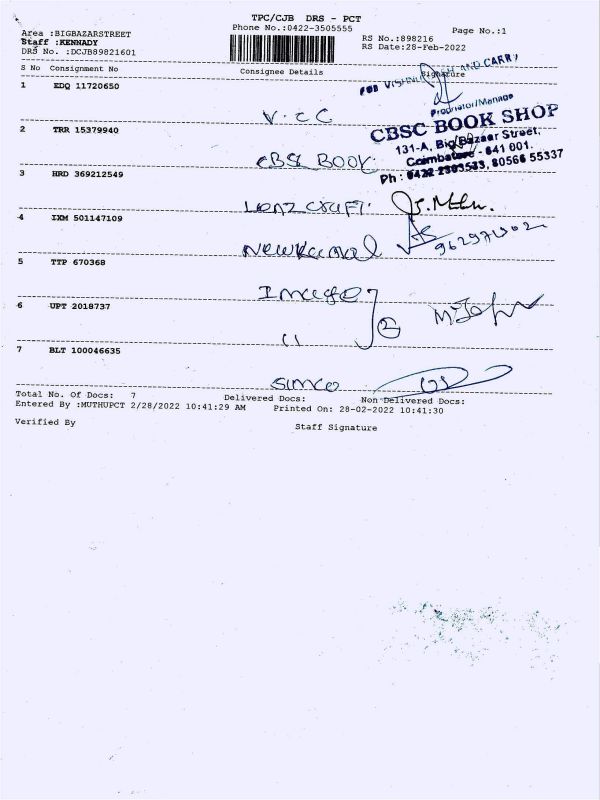 TPC/CJB DRS - PCT
Phone No.:0422-3505555
Page No.:1
Area :BIGBAZARSTREET
Staff :KENNADY
DRS No. :DCJB89821601
RS No.:898216
RS Date:28-Feb-2022
S No Consignment No Consignee Details Signature
FOR VISHNU CASH AND CARRY
Proprietor/Manage
1 EDQ 11720650 V.CC
CBSC BOOK SHOP
131-A, Big Bazaar Street,
Coimbatore - 641 001.
Ph : 0422 2393533, 80566 55337
2 TRR 15379940 CBS BOOK
3 HRD 369212549
4 IXM 501147109
5 TTP 670368 Image
6 UPT 2018737 11 2
7 BLT 100046635 Simco
Total No. Of Docs: 7 Delivered Docs: Non Delivered Docs:
Entered By :MUTHUPCT 2/28/2022 10:41:29 AM Printed On: 28-02-2022 10:41:30
Verified By Staff Signature